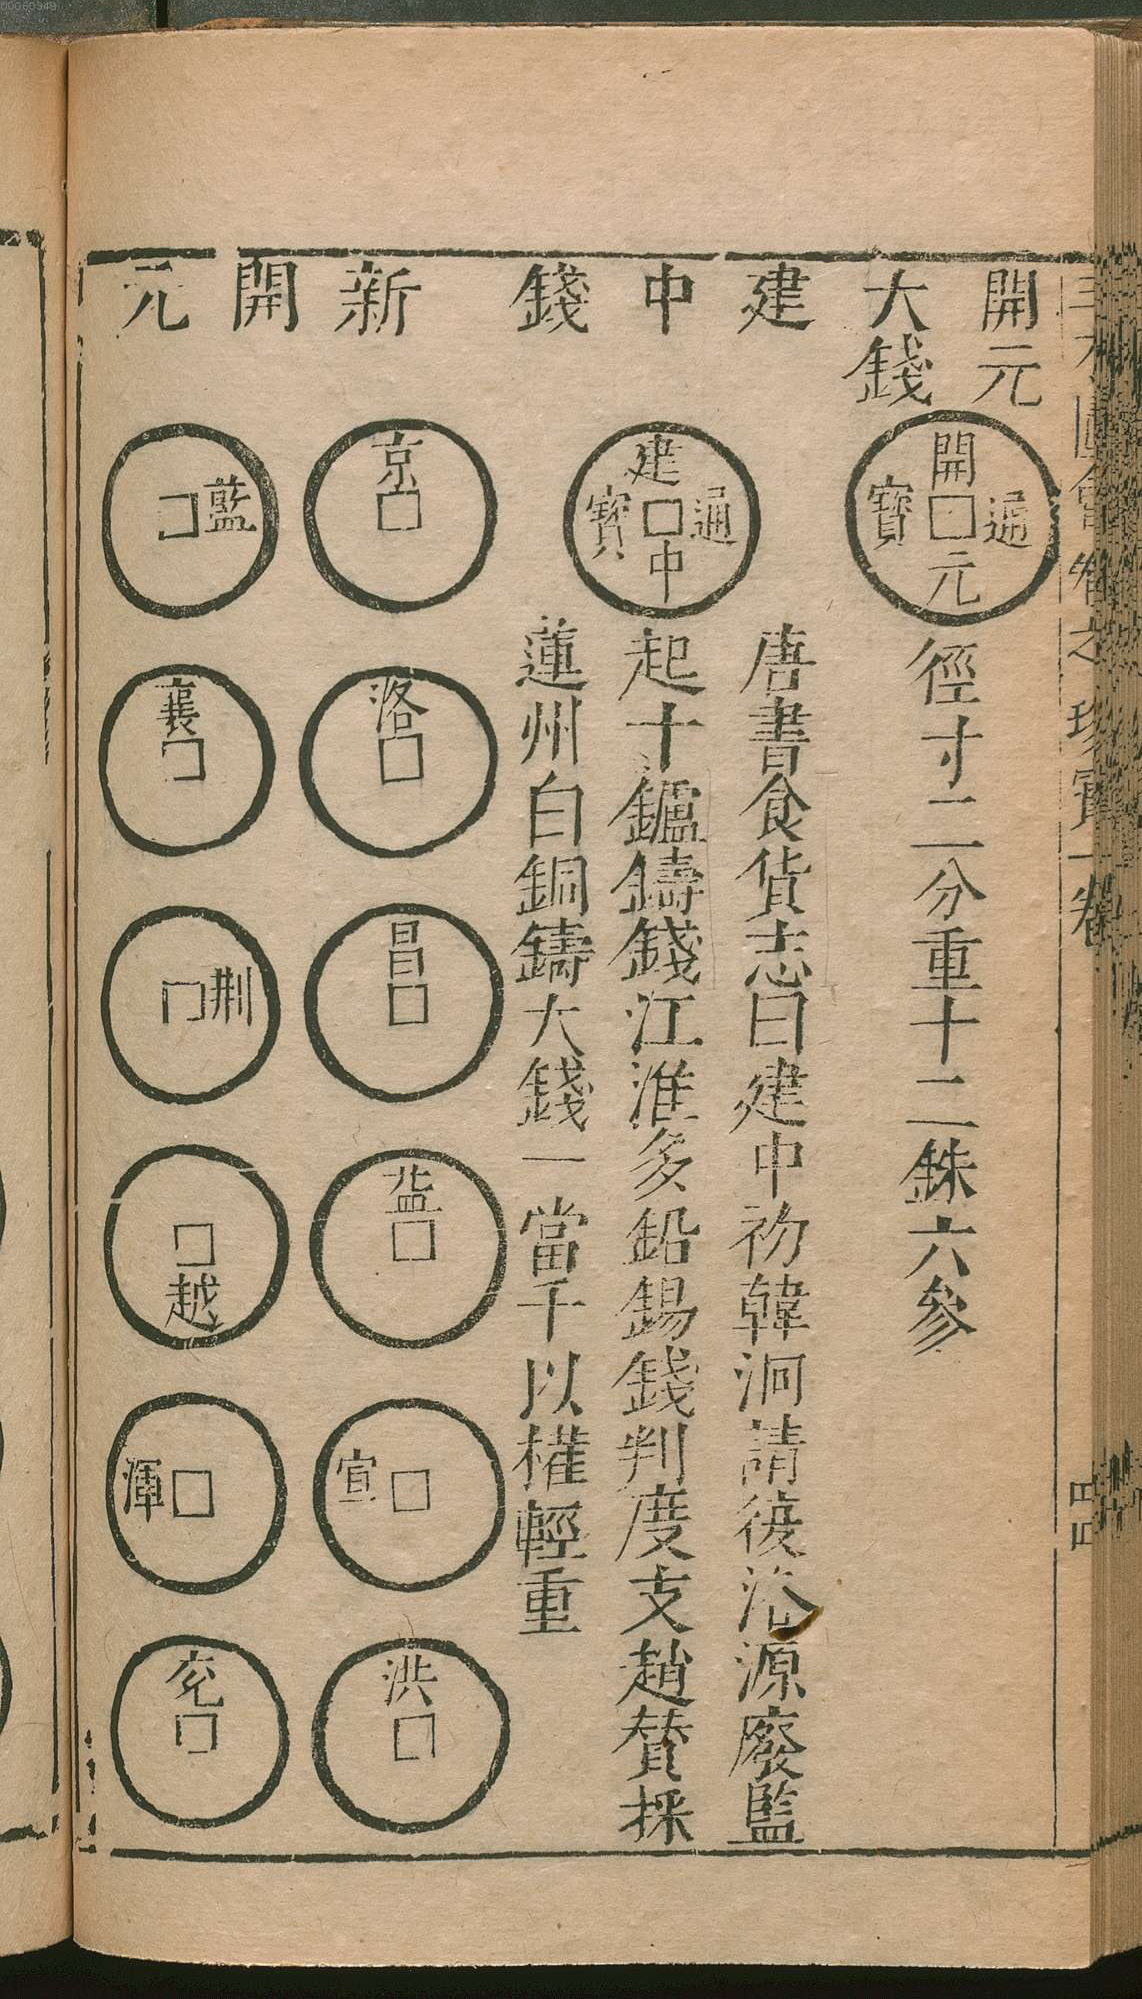 00060349
開元
大錢
開元通寶
徑寸二分重十二銖六參
建
中
錢
建中通寶
唐書食貨志曰建中初韓洄請復洛源廢監
起十鑪鑄錢江淮多鉛錫錢判度支趙贊採
蓮州白銅鑄大錢一當十以權輕重
新
開
元
京
洛
昌
益
宣
洪
藍
襄
荆
越
潭
兖